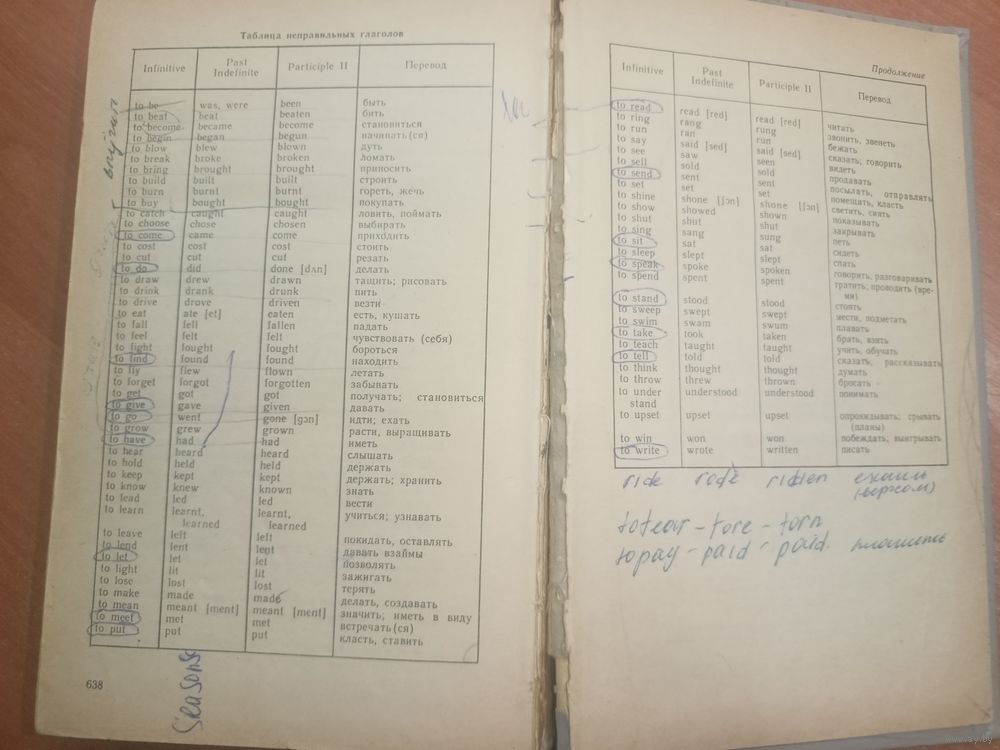 Таблица неправильных глаголов
Infinitive Past Indefinite Participle II Перевод
to be was, were been быть
to beat beat beaten бить
to become became become становиться
to begin began begun начинать(ся)
to blow blew blown дуть
to break broke broken ломать
to bring brought brought приносить
to build built built строить
to burn burnt burnt гореть, жечь
to buy bought bought покупать
to catch caught caught ловить, поймать
to choose chose chosen выбирать
to come came come приходить
to cost cost cost стоить
to cut cut cut резать
to do did done [dʌn] делать
to draw drew drawn тащить; рисовать
to drink drank drunk пить
to drive drove driven везти
to eat ate [et] eaten есть, кушать
to fall fell fallen падать
to feel felt felt чувствовать (себя)
to fight fought fought бороться
to find found found находить
to fly flew flown летать
to forget forgot forgotten забывать
to get got got получать; становиться
to give gave given давать
to go went gone [gɔn] идти; ехать
to grow grew grown расти, выращивать
to have had had иметь
to hear heard heard слышать
to hold held held держать
to keep kept kept держать; хранить
to know knew known знать
to lead led led вести
to learn learnt, learned learnt, learned учиться; узнавать
to leave left left покидать, оставлять
to lend lent lent давать взаймы
to let let let позволять
to light lit lit зажигать
to lose lost lost терять
to make made made делать, создавать
to mean meant [ment] meant [ment] значить; иметь в виду
to meet met met встречать(ся)
to put put put класть, ставить
638
seasons
Продолжение
Infinitive Past Indefinite Participle II Перевод
to read read [red] read [red] читать
to ring rang rung звонить, звенеть
to run ran run бежать
to say said [sed] said [sed] сказать; говорить
to see saw seen видеть
to sell sold sold продавать
to send sent sent посылать, отправлять
to set set set помещать, класть
to shine shone [ʃɔn] shone [ʃɔn] светить, сиять
to show showed shown показывать
to shut shut shut закрывать
to sing sang sung петь
to sit sat sat сидеть
to sleep slept slept спать
to speak spoke spoken говорить, разговаривать
to spend spent spent тратить; проводить (время)
to stand stood stood стоять
to sweep swept swept мести, подметать
to swim swam swum плавать
to take took taken брать, взять
to teach taught taught учить, обучать
to tell told told сказать, рассказывать
to think thought thought думать
to throw threw thrown бросать
to under stand understood understood понимать
to upset upset upset опрокидывать; срывать (планы)
to win won won побеждать; выигрывать
to write wrote written писать
ride rode ridden ехать
(верхом)
to tear - tore - torn
to pay - paid - paid. платить
www.ay.by